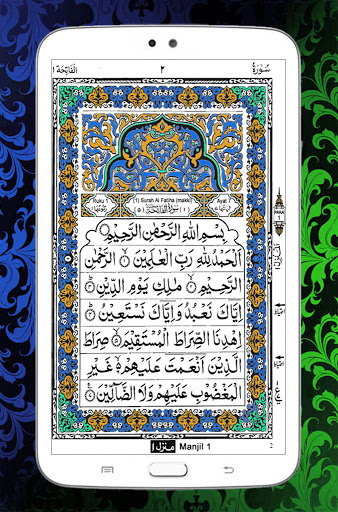 سُوْرَةُ ٢ اَلْفَاتِحَة ١
Ruku 1 (1) Surah Al Fatiha (makki) Ayat 7
بِسْمِ اللّٰهِ الرَّحْمٰنِ الرَّحِيْمِ
اَلْحَمْدُ لِلّٰهِ رَبِّ الْعٰلَمِيْنَ ۙ الرَّحْمٰنِ
الرَّحِيْمِ ۙ مٰلِكِ يَوْمِ الدِّيْنِ ؕ
اِيَّاكَ نَعْبُدُ وَاِيَّاكَ نَسْتَعِيْنُ ؕ
اِهْدِنَا الصِّرَاطَ الْمُسْتَقِيْمَ ۙ صِرَاطَ
الَّذِيْنَ اَنْعَمْتَ عَلَيْهِمْ ۙ غَيْرِ
الْمَغْضُوْبِ عَلَيْهِمْ وَلَا الضَّآلِّيْنَ
PARA
1
منزل ١ Manjil 1
2